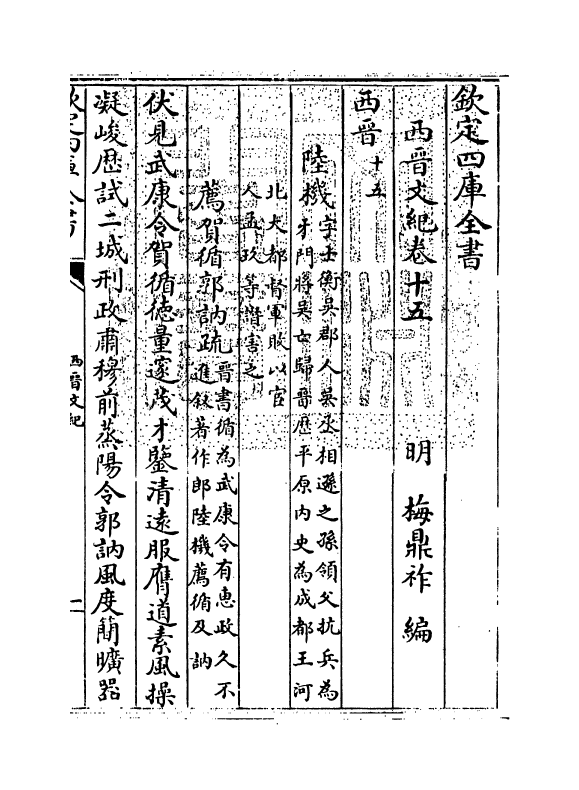 欽定四庫全書
西晉文紀卷十五
明 梅鼎祚 編
西晉十五
陸機字士衡吳郡人吳丞相遜之孫領父抗兵為
牙門將吳亡歸晉歷平原內史為成都王河
北大都督軍敗以宦
人孟玖等譖害之
薦賀循郭訥疏晉書循為武康令有惠政久不
進敘著作郎陸機薦循及訥
伏見武康令賀循德量邃茂才鑒清遠服膺道素風操
凝峻歷試二城刑政肅穆前蒸陽令郭訥風度簡曠器
欽定四庫全書
西晉文紀